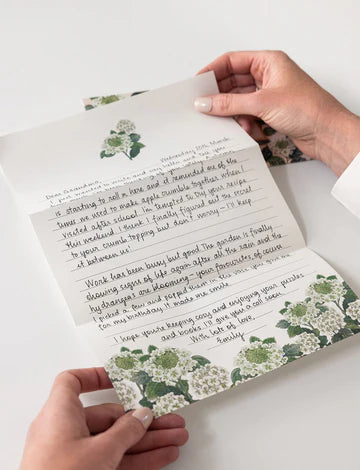 Wednesday 20th March
Dear Grandma,
I just wanted to write and say hello and tell you
is starting to fall in here and it reminded me of the
time we used to make apple crumble together when I
visited after school. I'm tempted to try your recipe
this weekend. I think I finally figured out the secret
to your crumble topping but don't worry – I'll keep
it between us!
Work has been busy but good. The garden is finally
showing signs of life again after all the rain and the
hydrangeas are blooming – your favourites of course.
I picked a few and popped them in the vase you gave me
for my birthday. It made me smile.
I hope you're keeping cosy and enjoying your puzzles
and books. I'll give you a call soon.
With lots of love,
Emily